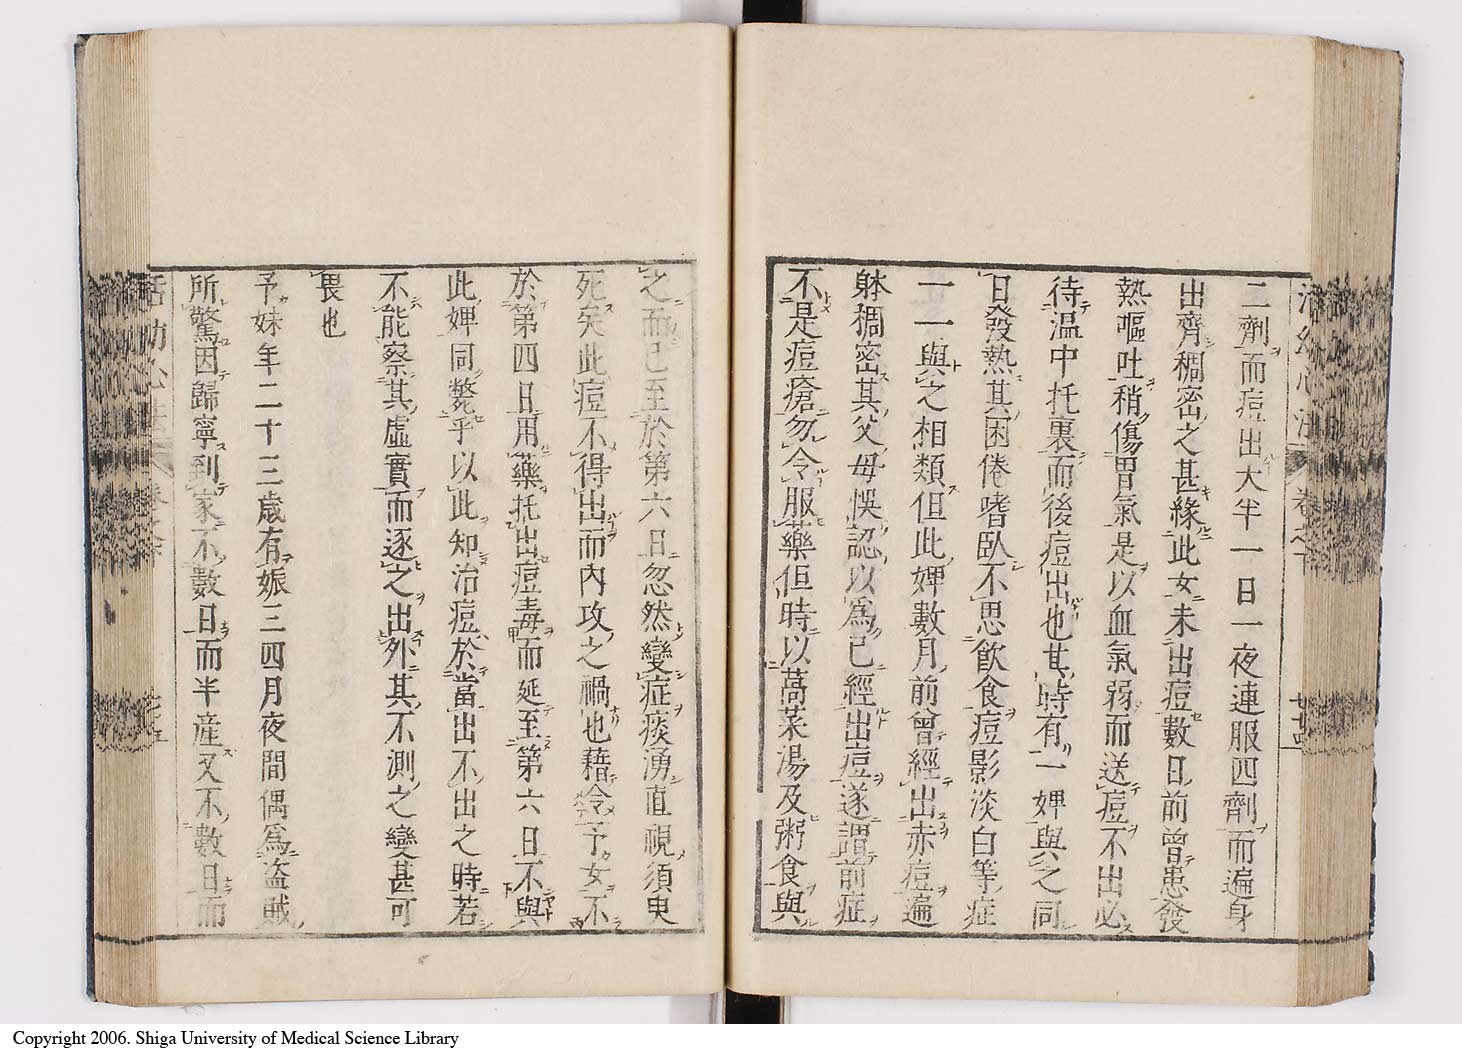 二劑而痘出大半一日一夜連服四劑而遍身
出齊稠密之甚緣此女未出痘數日前曾患發
熱嘔吐稍傷胃氣是以血氣弱而送痘不出必
待温中托裏而後痘出也其時有一婢與之同
日發熱其困倦嗜臥不思飲食痘影淡白等症
一一與之相類但此婢數月前曾經出赤痘遍
躰稠密其父母悞認以爲已經出痘遂謂前症
不是痘瘡勿令服藥但時以萵菜湯及粥食與
之而已至於第六日忽然變症痰湧直視須臾
死矣此痘不得出而内攻之禍也藉令予女不
於第四日用藥托出痘毒而延至第六日不與
此婢同斃乎以此知治痘於當出不出之時若
不能察其虛實而逐之出外其不測之變甚可
畏也
予妹年二十三歲有娠三四月夜間偶爲盗賊
所驚因歸寧到家不數日而半産又不數日而
Copyright 2006. Shiga University of Medical Science Library